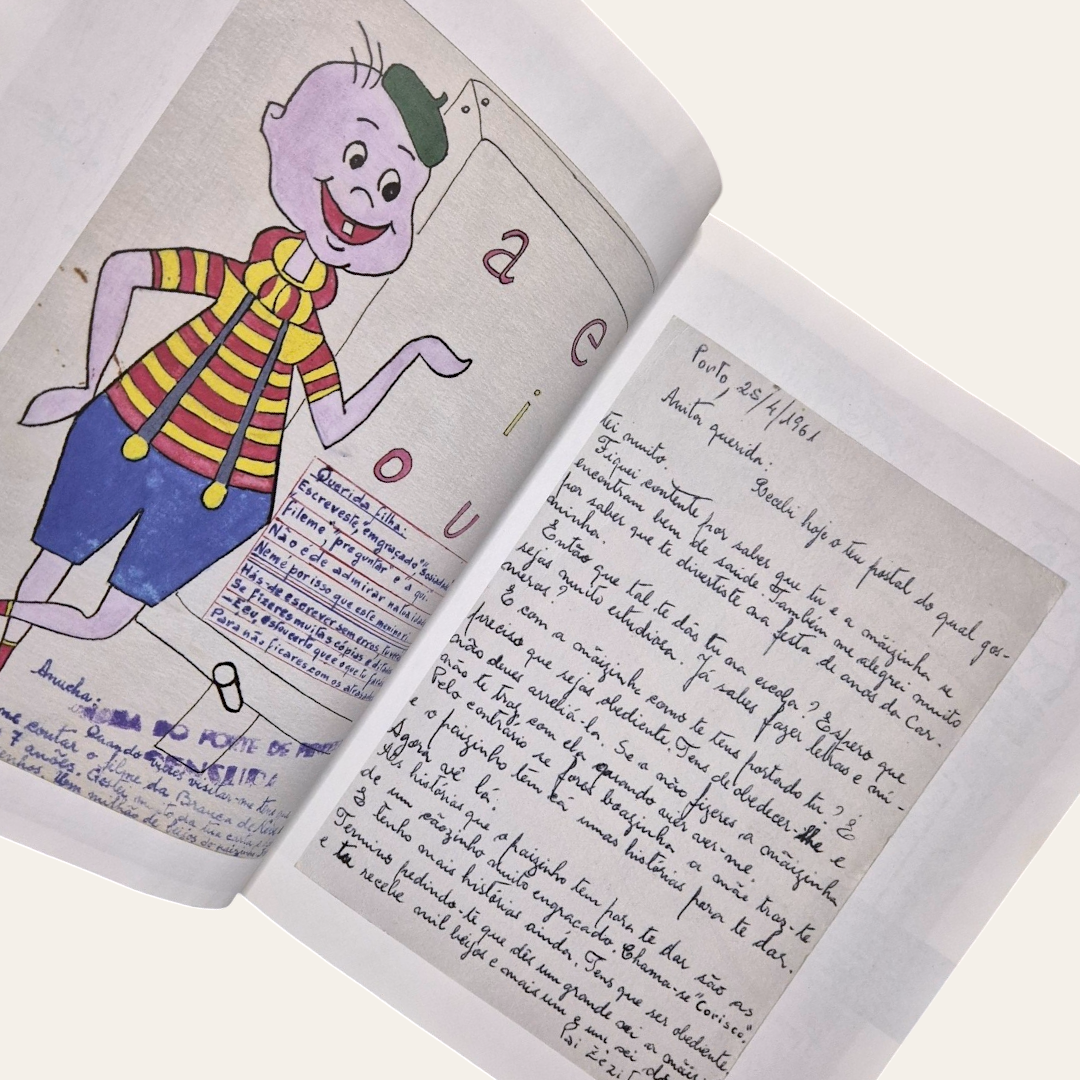 a
e
i
o
u
Querida filha:
Escreveste, engraçado
fileme, preguntar e a qui.
Não é de admirar
Nem é por isso que este menino ri.
Hás-de escrever sem erros,
Se fizeres muitas cópias e
- E eu estou certo que é o que tu
Para não ficares com os
Anucha:
Quando
me contar o filme da Branca de Neve
7 anões. Gostei
Um milhão de beijos do paizinho
Porto, 25/4/1961
Anita querida:
Recebi hoje o teu postal do qual gos-
tei muito.
Fiquei contente por saber que tu e a mãizinha se
encontram bem de saúde. Também me alegrei muito
por saber que te divertiste na festa de anos da Car-
minha.
Então que tal te dás tu na escola? Espero que
sejas muito estudiosa. Já sabes fazer letras e nú-
meros?
E com a mãizinha como te tens portado tu? É
preciso que sejas obediente. Tens de obedecer-lhe e
não deves arreliá-la. Se a não fizeres a mãizinha
não te traz com ela quando vier ver-me.
Pelo contrário se fores boazinha a mãe traz-te
e o paizinho tem cá umas histórias para te dar.
Agora vê lá:
As histórias que o paizinho tem para te dar são as
de um cãozinho muito engraçado. Chama-se "Corisco".
E tenho mais histórias ainda. Tens que ser obediente
Termino pedindo-te que dês um grande xi a mãizi-
e tu recebe mil beijos e mais um e um xi do
Pai Zézi